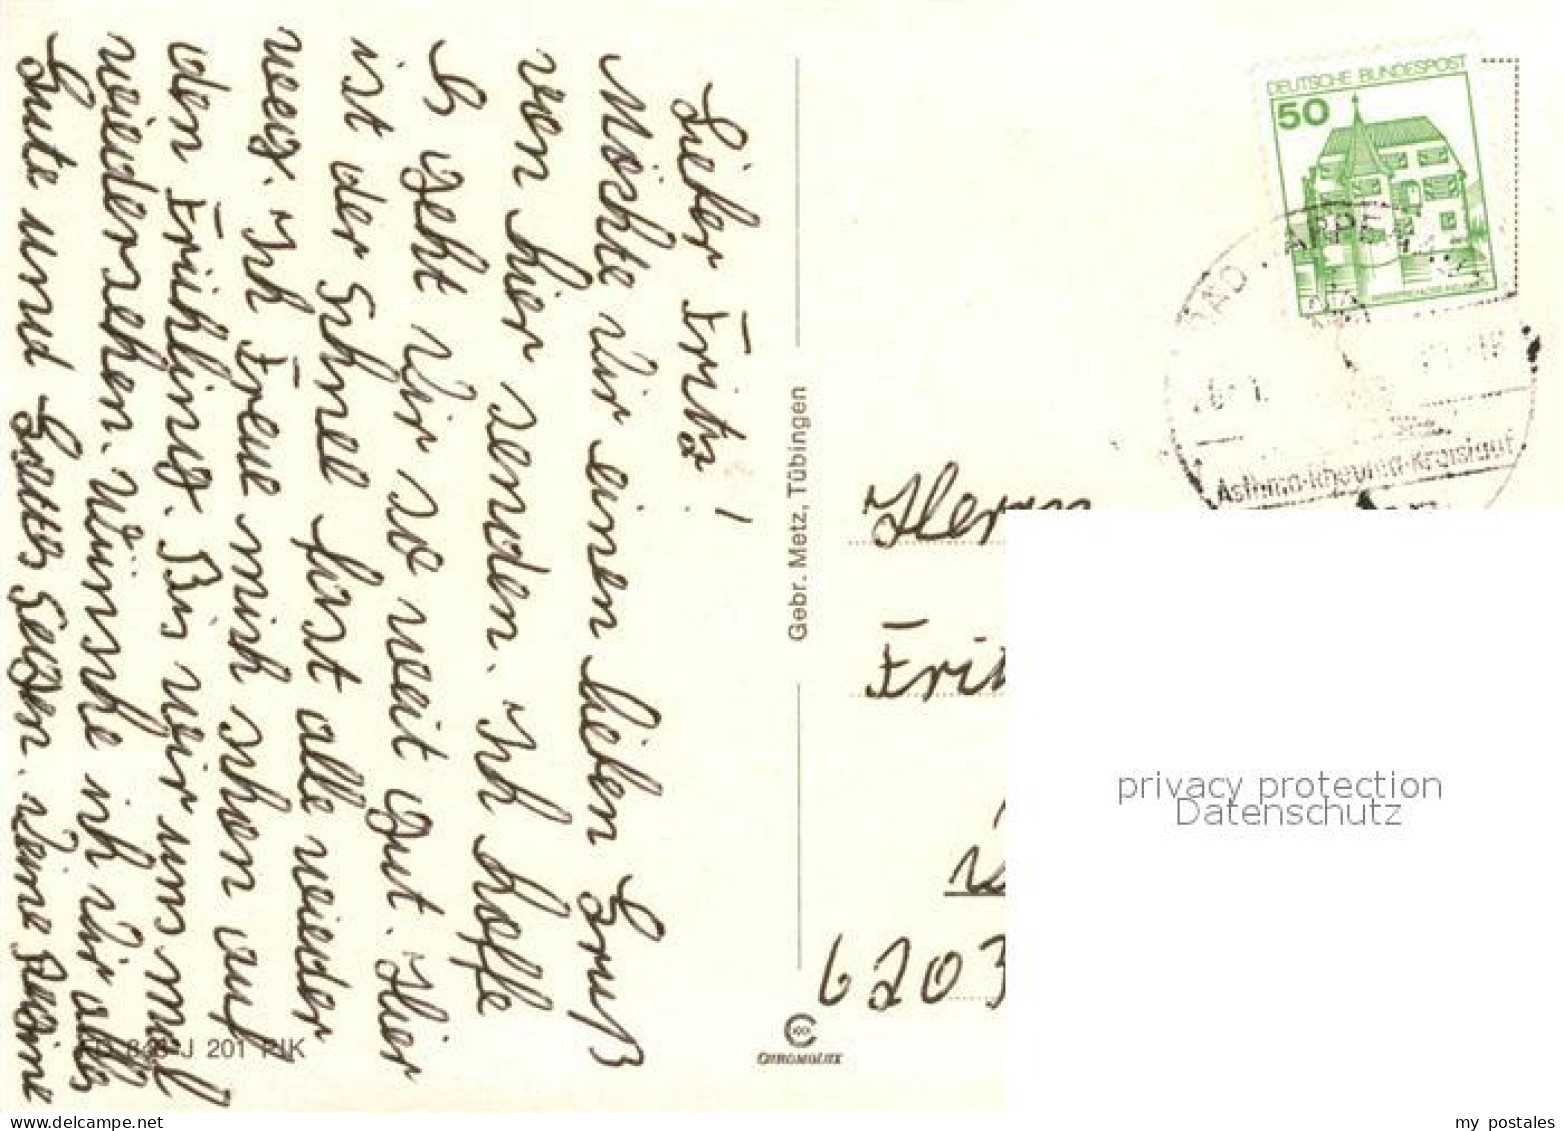 Lieber Fritz!
Möchte Dir einen lieben Gruß
von hier senden. Ich hoffe
Es geht Dir so weit gut. Hier
ist der Schnee fast alle wieder
weg. Ich Freue mich schon auf
den Frühling. Bis wir uns mal
wiedersehen. Wünsche ich Dir alles
Gute und Gottes Segen. Deine
Gebr. Metz, Tübingen
CHROMOLUX
J 201
DEUTSCHE BUNDESPOST
50
BAD
Asthma-Rheuma-Kreislauf
Herrn
6203
privacy protection
Datenschutz
www.delcampe.net
my_postales